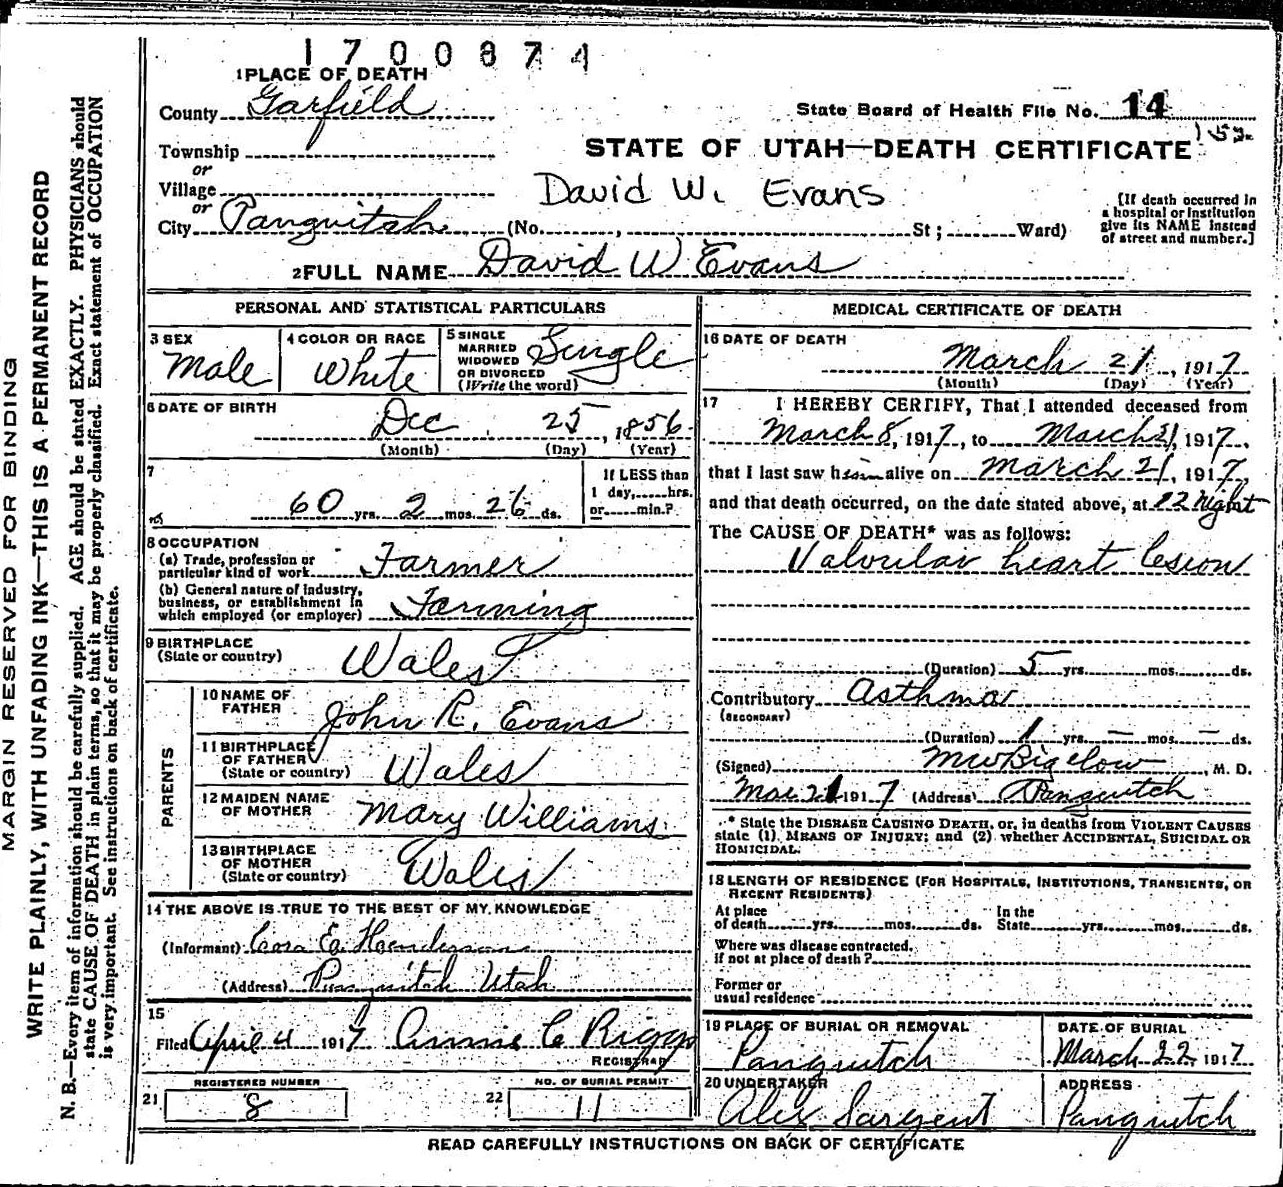 1700874
1 PLACE OF DEATH
County Garfield
State Board of Health File No. 14
Township
or
STATE OF UTAH—DEATH CERTIFICATE
Village
or
David W. Evans
City Panguitch (No. , St; Ward)
[If death occurred in
a hospital or institution
give its NAME instead
of street and number.]
2 FULL NAME David W Evans
PERSONAL AND STATISTICAL PARTICULARS
3 SEX
Male
4 COLOR OR RACE
White
5 SINGLE
MARRIED
WIDOWED
OR DIVORCED
(Write the word)
Single
6 DATE OF BIRTH
Dec 25, 1856
(Month) (Day) (Year)
7
60 yrs. 2 mos. 26 ds.
If LESS than
1 day, hrs.
or min.?
8 OCCUPATION
(a) Trade, profession or
particular kind of work Farmer
(b) General nature of industry,
business, or establishment in
which employed (or employer) Farming
9 BIRTHPLACE
(State or country) Wales
PARENTS
10 NAME OF
FATHER John R. Evans
11 BIRTHPLACE
OF FATHER
(State or country) Wales
12 MAIDEN NAME
OF MOTHER Mary Williams
13 BIRTHPLACE
OF MOTHER
(State or country) Wales
14 THE ABOVE IS TRUE TO THE BEST OF MY KNOWLEDGE
(Informant) Henderson
(Address) Panguitch Utah
15
Filed April 4 1917 Annie C Riggs
REGISTRAR
REGISTERED NUMBER
21 8
NO. OF BURIAL PERMIT
22 11
MEDICAL CERTIFICATE OF DEATH
16 DATE OF DEATH
March 21, 1917
(Month) (Day) (Year)
17 I HEREBY CERTIFY, That I attended deceased from
March 8, 1917, to March 21, 1917,
that I last saw him alive on March 21, 1917,
and that death occurred, on the date stated above, at 12 Night
The CAUSE OF DEATH* was as follows:
Valvular heart lesion
(Duration) 5 yrs. mos. ds.
Contributory Asthma
(SECONDARY)
(Duration) 1 yrs. — mos. — ds.
(Signed) MW Bigelow, M. D.
Mar 21 1917 (Address) Panguitch
* State the DISEASE CAUSING DEATH, or, in deaths from VIOLENT CAUSES
state (1) MEANS OF INJURY; and (2) whether ACCIDENTAL, SUICIDAL OR
HOMICIDAL.
18 LENGTH OF RESIDENCE (FOR HOSPITALS, INSTITUTIONS, TRANSIENTS, OR
RECENT RESIDENTS)
At place
of death yrs. mos. ds.
In the
State yrs. mos. ds.
Where was disease contracted,
if not at place of death?
Former or
usual residence
19 PLACE OF BURIAL OR REMOVAL
Panguitch
DATE OF BURIAL
March 22 1917
20 UNDERTAKER
Alex Sargent
ADDRESS
Panguitch
READ CAREFULLY INSTRUCTIONS ON BACK OF CERTIFICATE
MARGIN RESERVED FOR BINDING
WRITE PLAINLY, WITH UNFADING INK—THIS IS A PERMANENT RECORD
N. B.—Every item of information should be carefully supplied. AGE should be stated EXACTLY. PHYSICIANS should
state CAUSE OF DEATH in plain terms, so that it may be properly classified. Exact statement of OCCUPATION
is very important. See instructions on back of certificate.